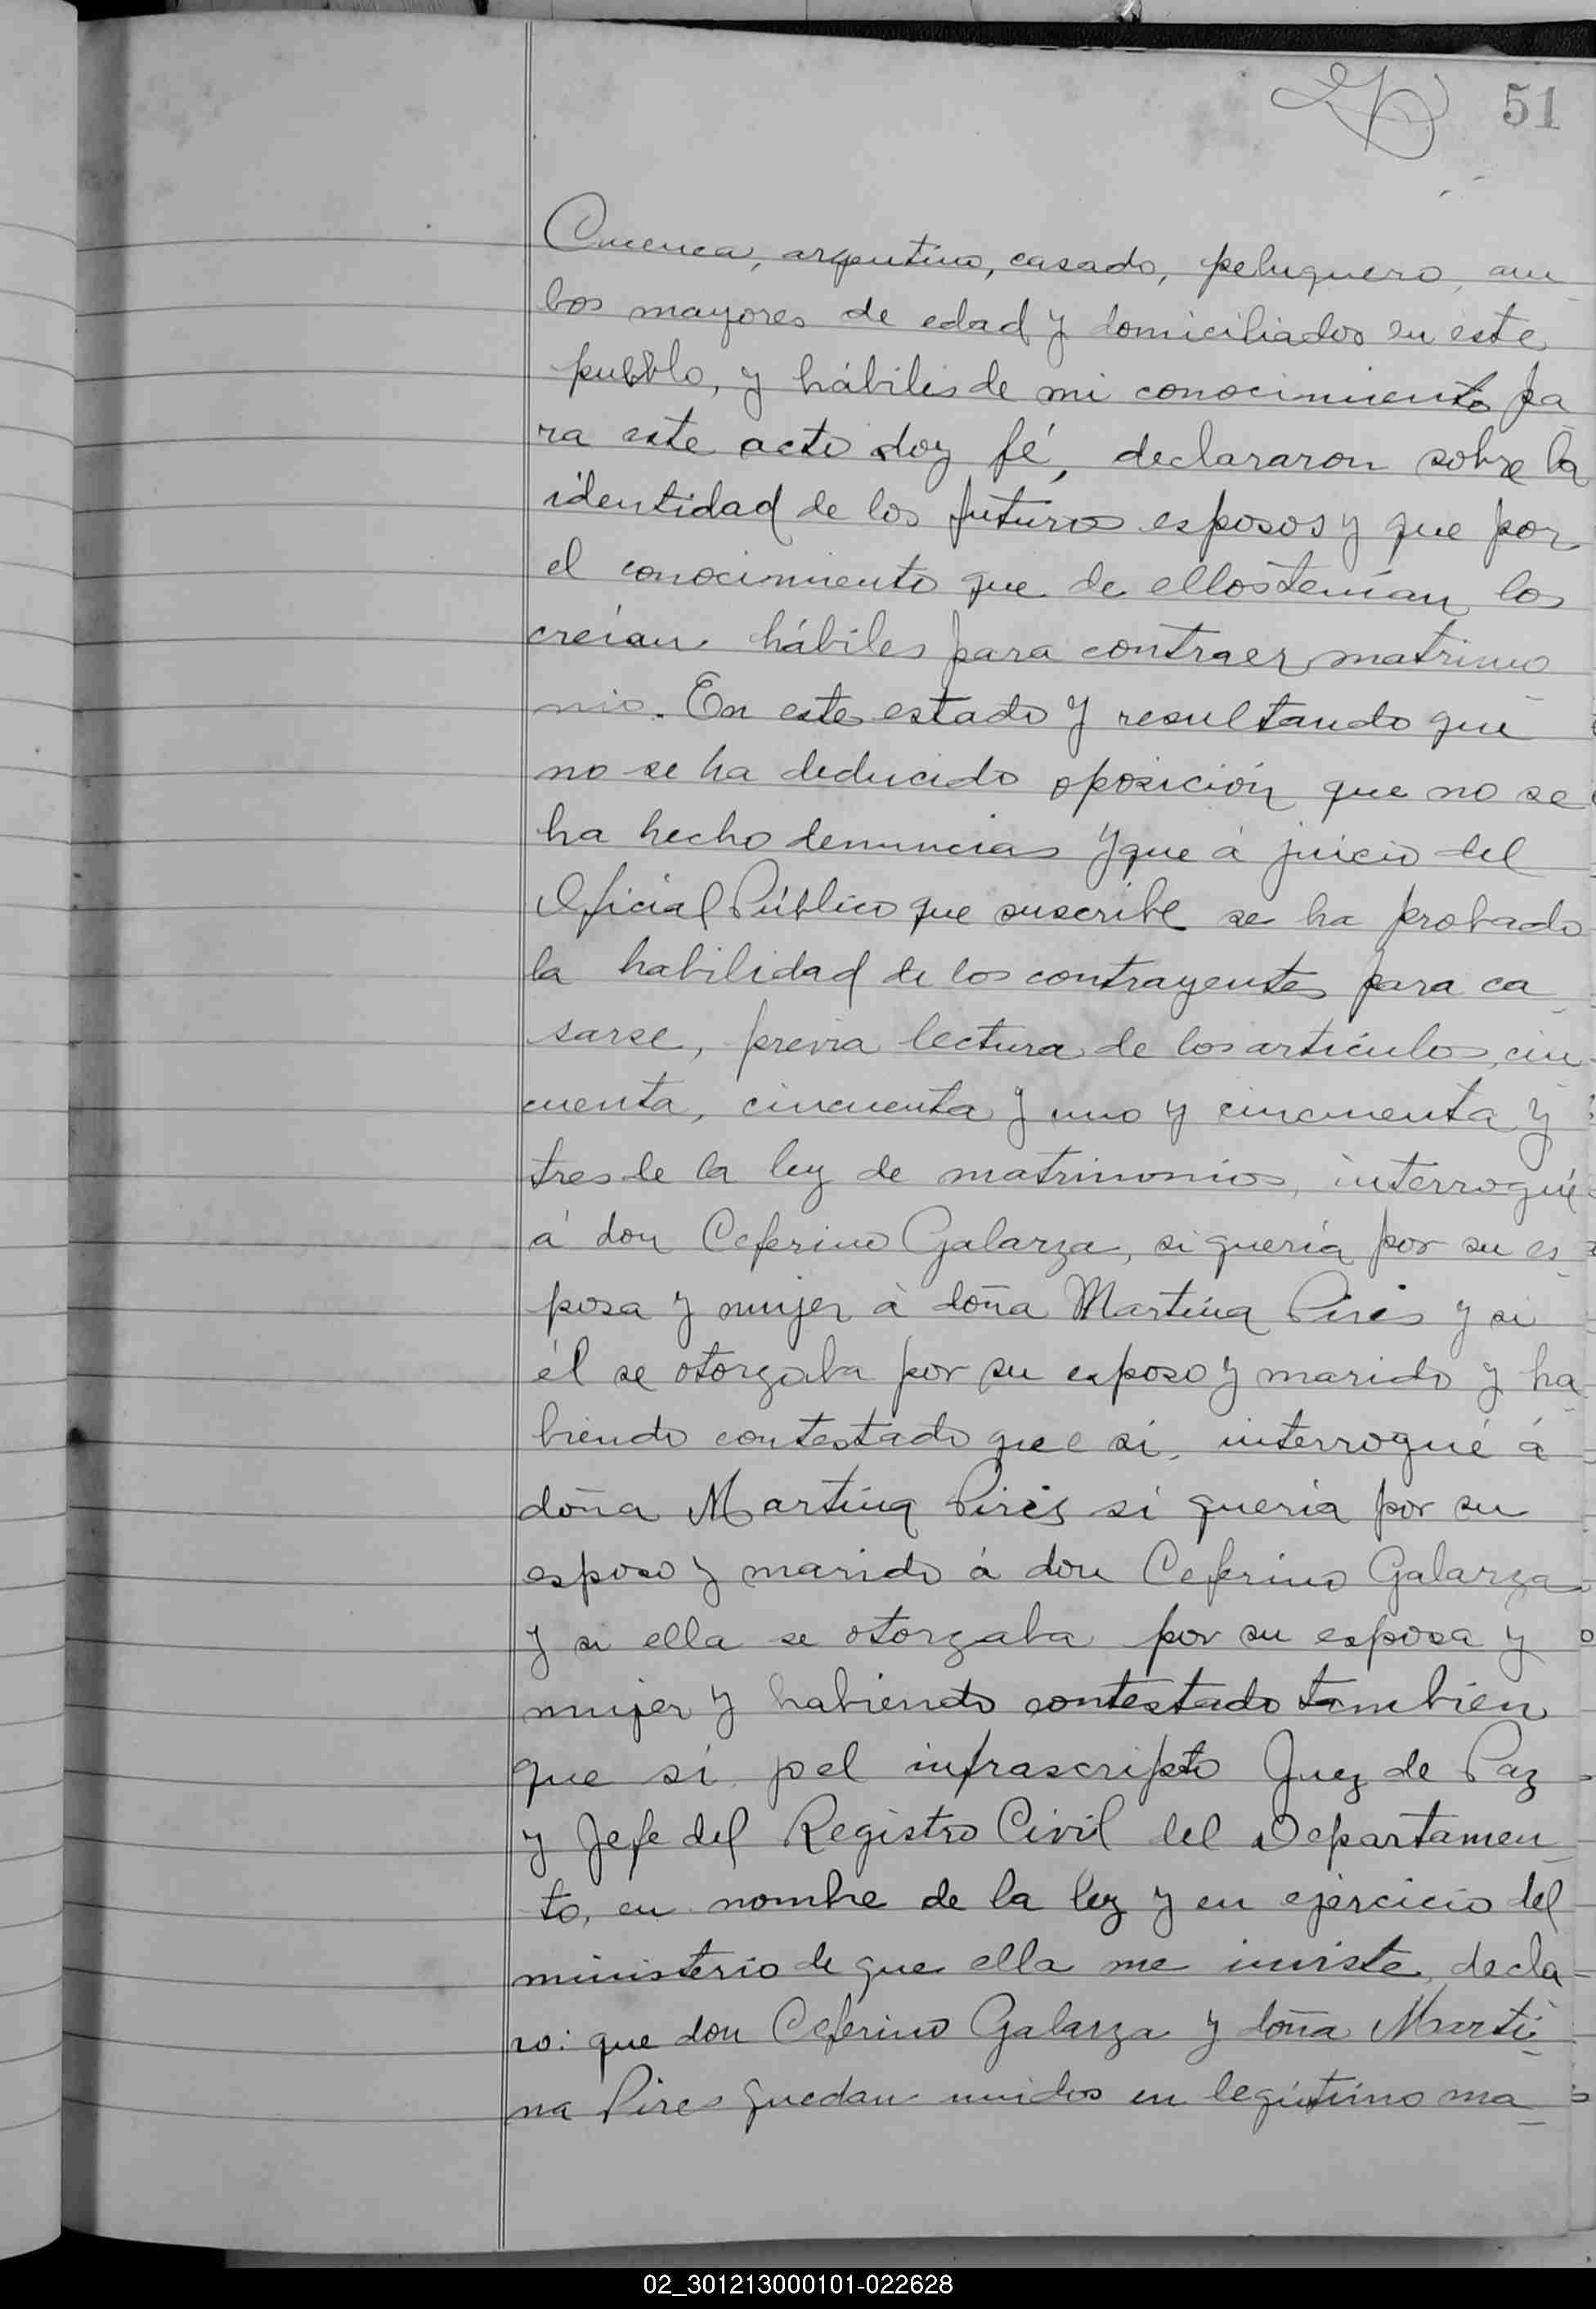 51
Cuenca, argentino, casado, peluquero, am
bos mayores de edad y domiciliados en este
pueblo, y hábiles de mi conocimiento pa
ra este acto doy fé, declararon sobre la
identidad de los futuros esposos y que por
el conocimiento que de ellos tenían los
creían hábiles para contraer matrimo
nio. En este estado y resultando que
no se ha deducido oposición que no se
ha hecho denuncias y que á juicio del
Oficial Público que suscribe se ha probado
la habilidad de los contrayentes para ca
sarse, previa lectura de los artículos, cin
cuenta, cincuenta y uno y cincuenta y
tres de la ley de matrimonios, interrogué
á don Ceferino Galarza, si quería por su es
posa y mujer á doña Martina Pires y si
él se otorgaba por su esposo y marido y ha
biendo contestado que si, interrogué á
doña Martina Pires si quería por su
esposo y marido á don Ceferino Galarza
y si ella se otorgaba por su esposa y
mujer y habiendo contestado tambien
que sí el infrascripto Juez de Paz
y Jefe del Registro Civil del Departamen
to, en nombre de la ley y en ejercicio del
ministerio de que ella me inviste, decla
ro: que don Ceferino Galarza y doña Marti
na Pires quedan unidos en legítimo ma
02_301213000101-022628